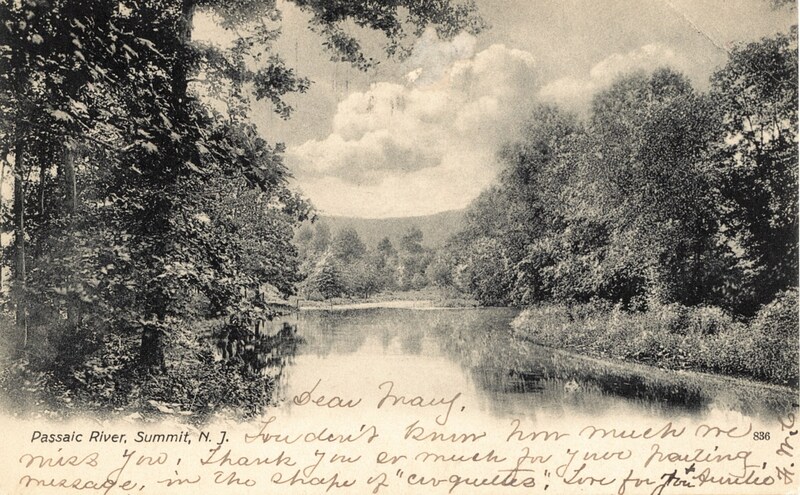 Dear Mary,
Passaic River, Summit, N. J. You don't know how much we 836
miss you. Thank you so much for your parting
message, in the shape of "croquettes". Love for you + Auntie